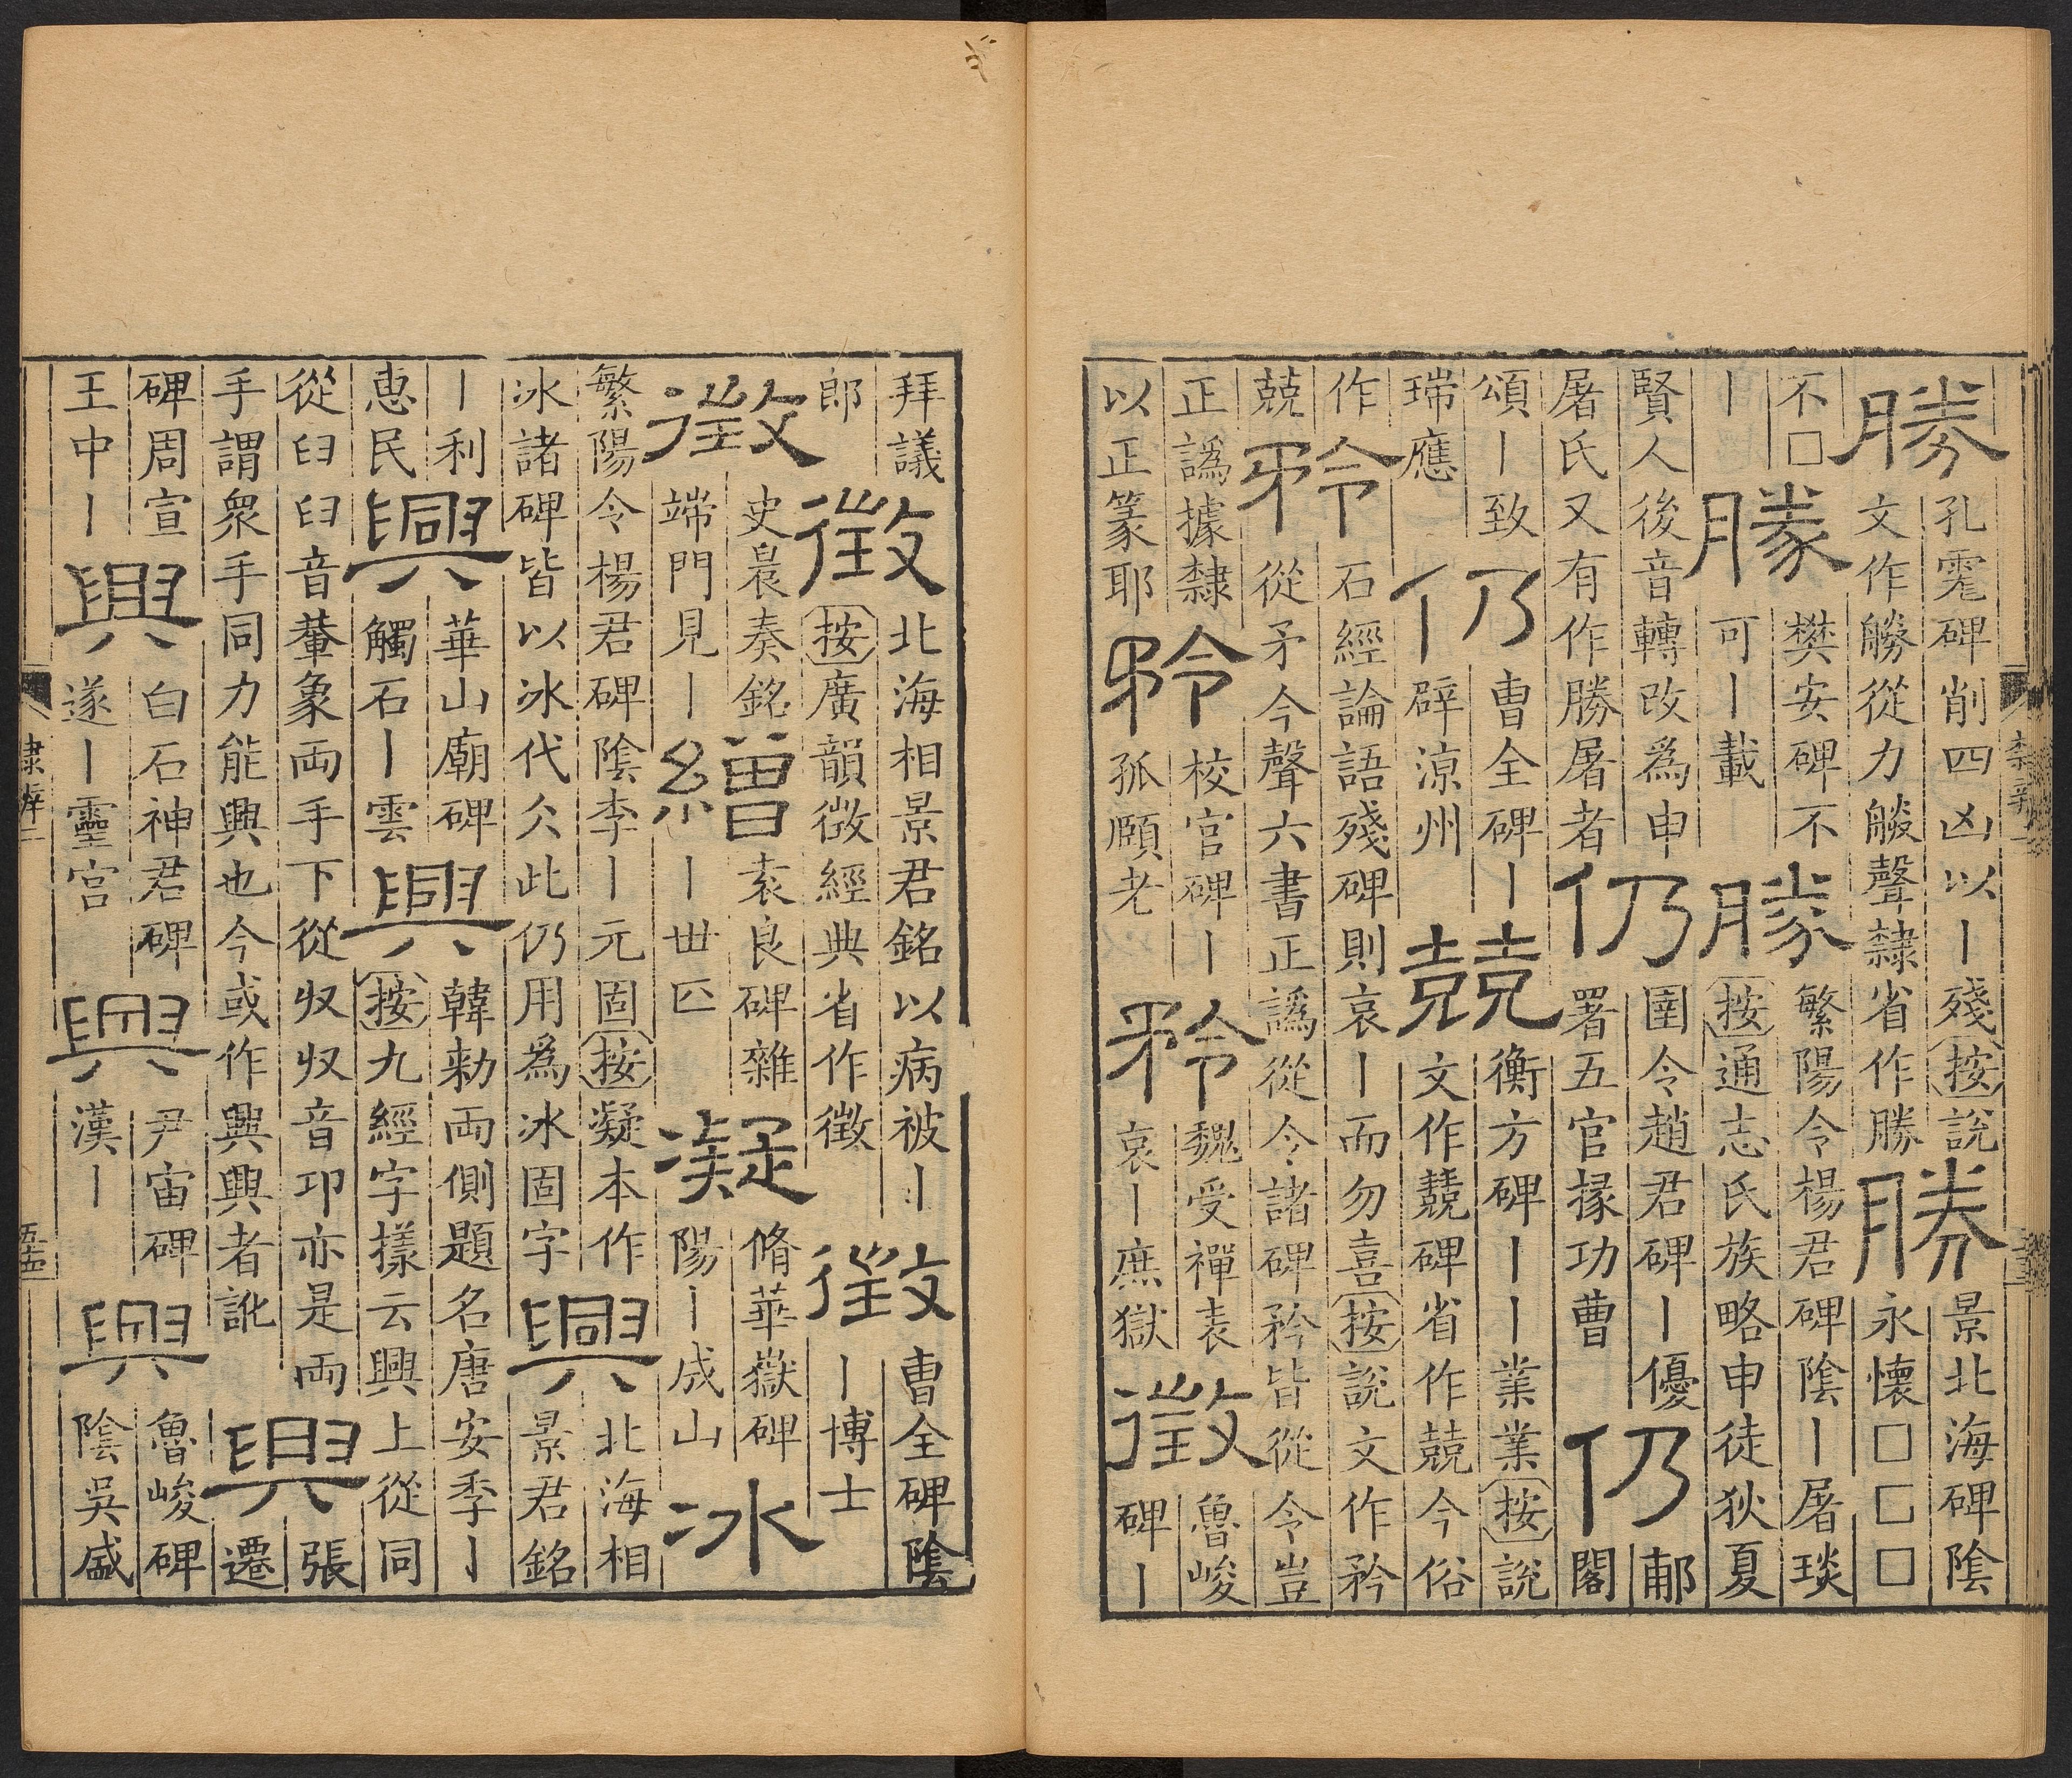 勝
孔宙碑削四凶以丨殘按說
文作勝從力朕聲隸省作勝
勝
景北海碑陰
永懷□□□
不□
丨
勝
樊安碑不
可丨載
勝
繁陽令楊君碑陰丨屠琰
按通志氏族略申徒狄夏
賢人後音轉改爲申
屠氏又有作勝屠者
仍
圉令趙君碑丨優
署五官掾功曹
仍
郙
閣
頌丨致
瑞應
仍
曹全碑丨
辟涼州
兢
衡方碑丨丨業業按說
文作兢碑省作兢今俗
作
兢
矜
石經論語殘碑則哀丨而勿喜按說文作矜
從矛今聲六書正譌從令諸碑矜皆從令豈
正譌據隸
以正篆耶
矜
校官碑丨
孤頤老
矜
魏受禪表
哀丨庶獄
徵
魯峻
碑丨
拜議
郎
徵
北海相景君銘以病被丨
按廣韻徵經典省作徵
徵
曹全碑陰
丨博士
徵
史晨奏銘
端門見丨
繒
袁良碑雜
丨丗匹
凝
脩華嶽碑
陽丨成山
冰
繁陽令楊君碑陰李丨元固按凝本作
冰諸碑皆以冰代仌此仍用爲冰固字
興
北海相
景君銘
丨利
惠民
興
華山廟碑
觸石丨雲
興
韓勑兩側題名唐安季丨
按九經字㨾云興上從同
從𦥑𦥑音輂象兩手下從収収音邛亦是兩
手謂衆手同力能興也今或作興興者訛
興
張
遷
碑周宣
王中丨
興
白石神君碑
遂丨靈宮
興
尹宙碑
漢丨
興
魯峻碑
陰吳盛
隸辨二
五十五